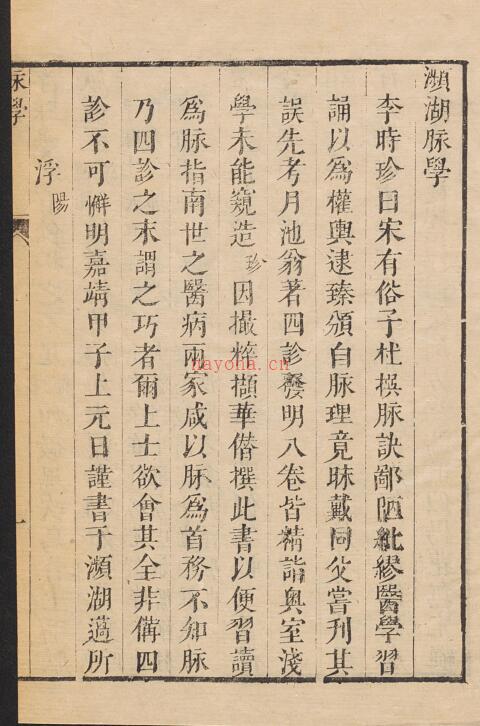 瀕湖脉學
李時珍曰宋有俗子杜撰脉訣鄙陋紕繆醫學習
誦以爲權輿逮臻頒白脉理竟昧戴同父嘗刊其
誤先考月池翁著四診發明八卷皆精詣奥室淺
學未能窺造珍因撮粹擷華僣撰此書以便習讀
爲脉指南世之醫病兩家咸以脉爲首務不知脉
乃四診之末謂之巧者爾上士欲會其全非備四
診不可旹明嘉靖甲子上元日謹書于瀕湖薖所
浮陽
脉學
一
nayona.cn